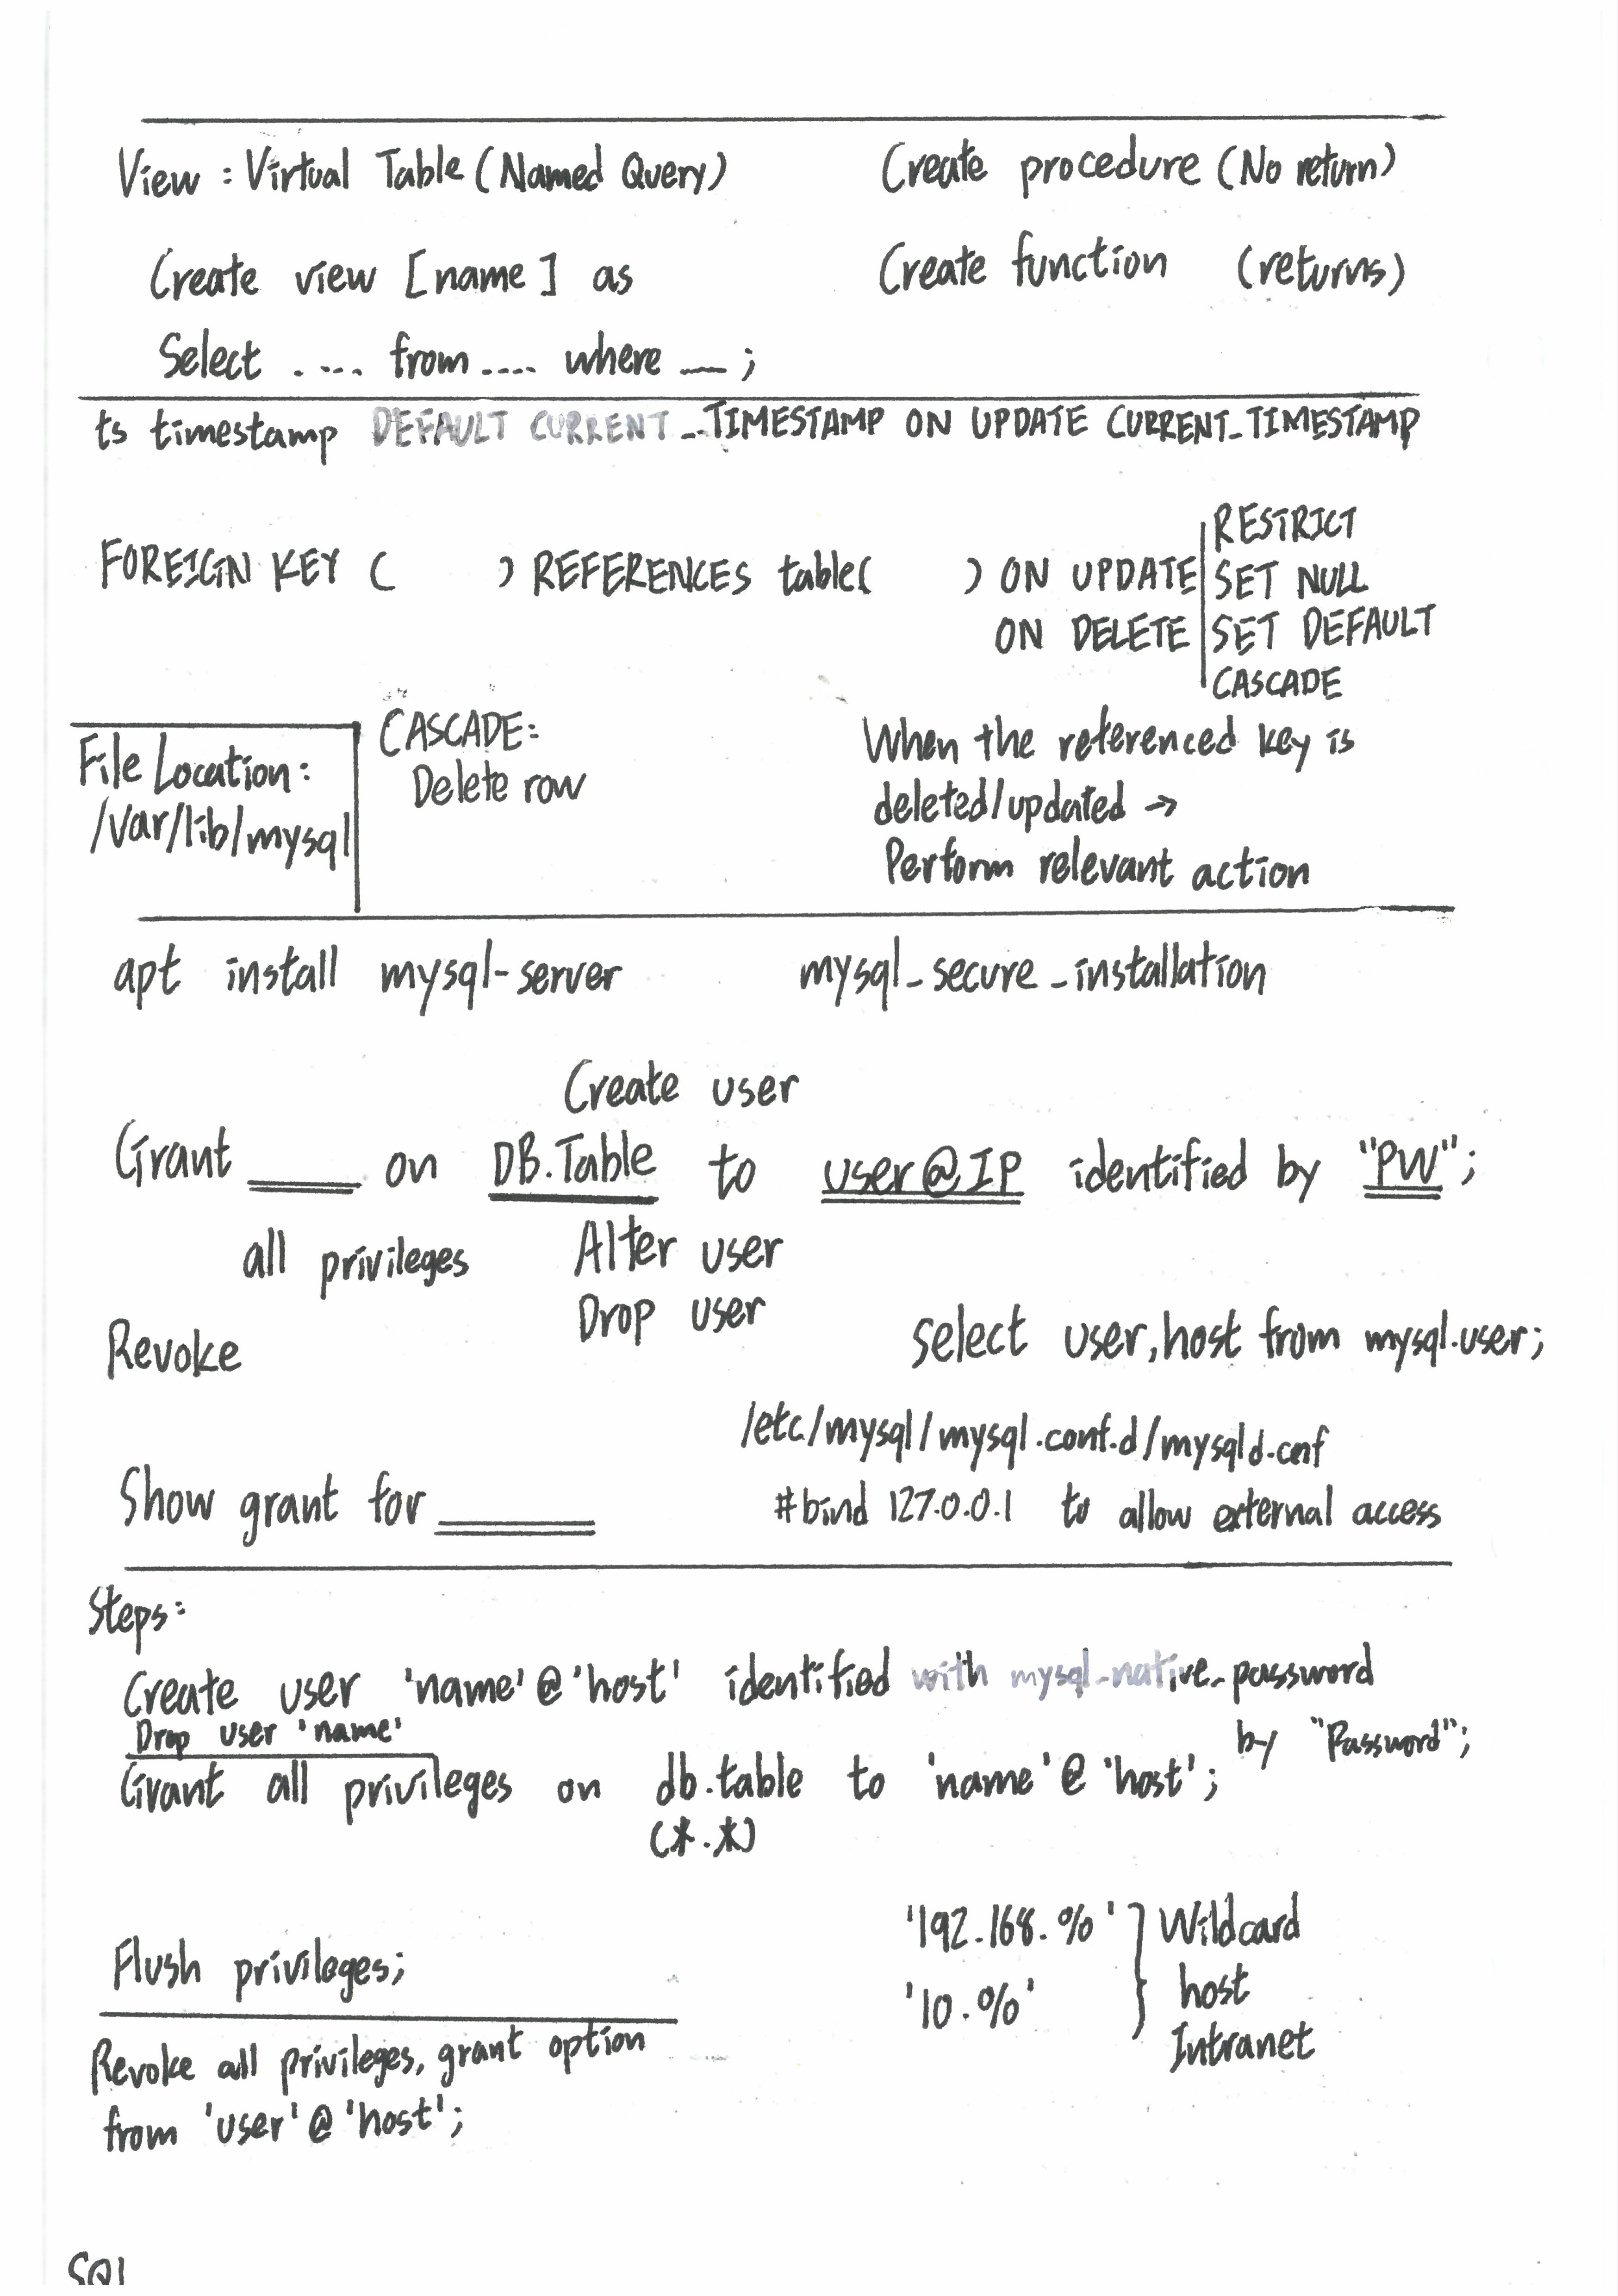 View : Virtual Table (Named Query)
Create procedure (No return)
Create view [name] as
Create function (returns)
Select .... from .... where __ ;
ts timestamp DEFAULT CURRENT_TIMESTAMP ON UPDATE CURRENT_TIMESTAMP
FOREIGN KEY ( ) REFERENCES table( ) ON UPDATE
ON DELETE
RESTRICT
SET NULL
SET DEFAULT
CASCADE
File Location:
/var/lib/mysql
CASCADE:
Delete row
When the referenced key is
deleted/updated →
Perform relevant action
apt install mysql-server
mysql_secure_installation
Create user
Grant ____ on DB.Table to user@IP identified by "PW";
all privileges
Alter user
Drop user
Revoke
select user,host from mysql.user;
/etc/mysql/mysql.conf.d/mysqld.cnf
Show grant for ______
#bind 127.0.0.1 to allow external access
Steps:
Create user 'name'@'host' identified with mysql_native_password
by "Password";
Drop user 'name'
Grant all privileges on db.table to 'name'@'host';
(*.*)
Flush privileges;
'192.168.%'
'10.%'
Wildcard
host
Intranet
Revoke all privileges, grant option
from 'user'@'host';
SQL